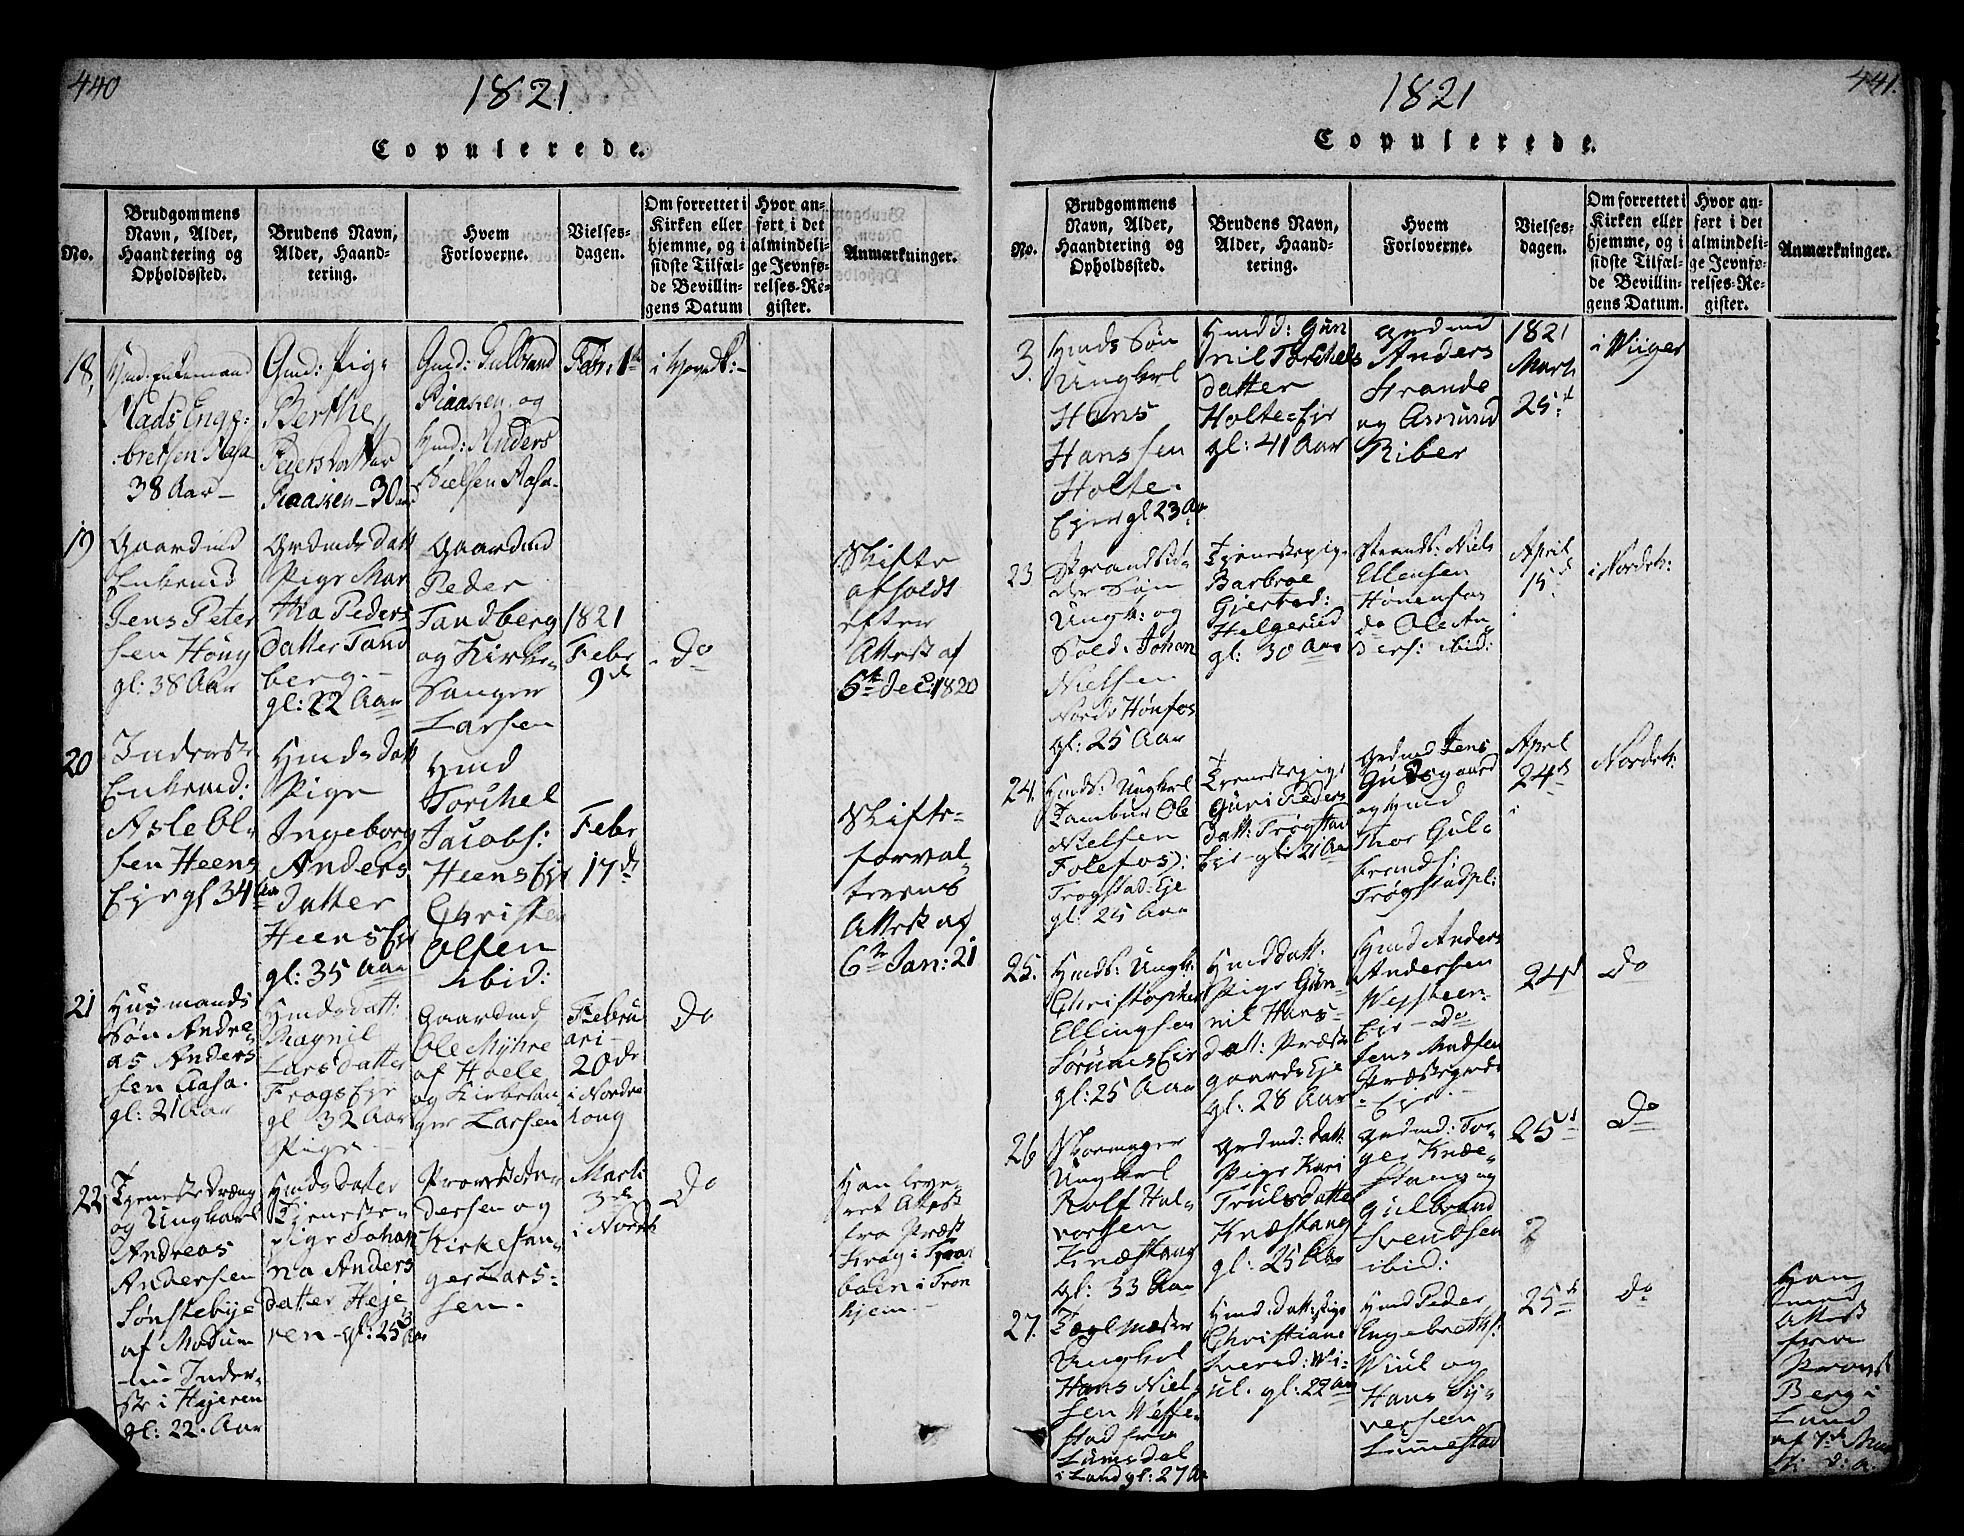 440
1821.
Copulerede.
No.
Brudgommens
Navn, Alder,
Haandtering og
Opholdssted.
Brudens Navn,
Alder, Haand-
tering.
Hvem
Forloverne.
Vielses-
dagen.
Om forrettet i
Kirken eller
hjemme, og i
sidste Tilfæl-
de Bevillin-
gens Datum
Hvor an-
ført i det
almindeli-
ge Jevnfø-
relses-Re-
gister.
Anmærkninger.
18,
Mads Enge:
bretsen Aasa
38 Aar
Gmd: Pig:
Berthe
Pedersdatter
30
Gmd: Gulbrand
og
Hmd: Anders
Nielsen Aasa.
Febr: 1
19
Gaardmd
Enkemd
Jens Peter
sen Hong
gl: 38 Aar
Grdmds Datt
Pige Mar
tha Peders
datter Tand
berg.
gl: 22 Aar
Gaardmd
Peder
Tandberg
og Kirke-
Sanger
Larsen
1821
Febr
9de
Do
Skifte
afholdt
efter
Attest af
5te Dec: 1820
20
Inderst
Enkemd:
Asle Ol-
sen Heens
Eje gl 34 Aar
Hmds Datt
Pige
Ingeborg
Anders
datter
Heens Eje
gl: 35 Aar
Hmd
Torchel
Jacobs:
Heens Eje
Christen
Olsen
ibid:
Febr
17d
Skifte-
forval-
terens
Attest af
6te Jan: 21
21
Husmands
Søn Andre-
as Anders
sen Aasa.
gl: 21 Aar
Hmdsdatt:
Magnil
Larsdatter
Frogs Eje
gl 32 Aar
Pige
Gaardmd
Ole Myhre
af Hole
og Kirkesan-
ger Larsen
Februa
ari
20de
i Nordre
houg
Do
22
Tjenestedræng
og Ungkarl
Andreas
Andersen
Sønstebye
af Modum
nu Inder-
st i Hejeren
gl: 22. Aar
Hmdsdatter
Tjeneste-
pige Johan
na Anders
datter Heje
ren - gl: 25 Aar
Provst An-
dersen og
Kirkesan-
ger Lars-
sen.
Marti
3de
i Nordh
Do
Han leve-
ret Attest
fra Præst
Krog i
i Tron
hjem.
1821
441.
Copulerede.
No.
Brudgommens
Navn, Alder,
Haandtering og
Opholdssted.
Brudens Navn,
Alder, Haand-
tering.
Hvem
Forloverne.
Vielses-
dagen.
Om forrettet i
Kirken eller
hjemme, og i
sidste Tilfæl-
de Bevillin-
gens Datum.
Hvor an-
ført i det
almindeli-
ge Jevnfø-
relses-Re-
gister.
Anmærkninger.
3.
Hmds Søn
Ungkarl
Hans
Hanssen
Holte-
Eje gl 23 Aar
Hmd d: Gun
nil Torchels
datter
Holte-Eje
gl: 41 Aar
Grdmd
Anders
Strande
og Asmund
Riber
1821
Marti
25:
i Wiiger
23
Strandsid-
der Søn
Ungk: og
Sold: Johan
Nielsen
Nordr Hønfos
gl: 25 Aar
Tjenestepige
Barbroe
Gjersted:
Helgerud
gl: 30 Aar
Strands: Niels
Ellensen
Hønenfos
do Ole An-
ders: ibid:
April
15d
i Nordeh:
24.
Hmds: Ungkarl
Tambur Ole
Nielsen
Folefos):
Trogstad: Eje
gl: 25 Aar
Tjenestepige
Guri Peders
datt: Trøgstad
Eje gl: 21 Aar
Grdmd Jens
Gudsgaard
og Hmd
Thor Gul-
brands:
Trøgstadpl:
April
24de
Nordeh:
25.
Hmds: Ungk:
Christopher
Ellingsen
Sørums Eje
gl: 25 Aar
Hmd datt:
Pige Gun-
nil Hans-
datt: Præste
gaards Eje
gl: 28 Aar
Hmd Anders
Andersen
Wegsteen-
Eje - do
Jens Madsen
Præstegrds
Eje.
24d
Do
26
Skomager
Ungkarl
Rolf Hal-
vorsen
Knæstang
gl: 33 Aar
Grdmd: datt:
Pige Kari
Trulsdatter
Knæstang
gl: 25 Aar
Grdmd: Tor-
ger Knæ-
stang og
Gulbrand
Svendsen
ibid:
25d
Do
27.
Tegl mester
Ungkarl
Hans Niel-
sen
stad fra
Lunsdal
i Land gl: 27 Aar
Hmd: datt: pige
Christiane
Wi-
ul. gl: 22 Aar
Hmd Peder
Engebreths:
Wiul og
Hans Sy-
versen
Lunestad
25d
do
Han
med
Attest
fra
Provst
Berg i
Land
af 7de